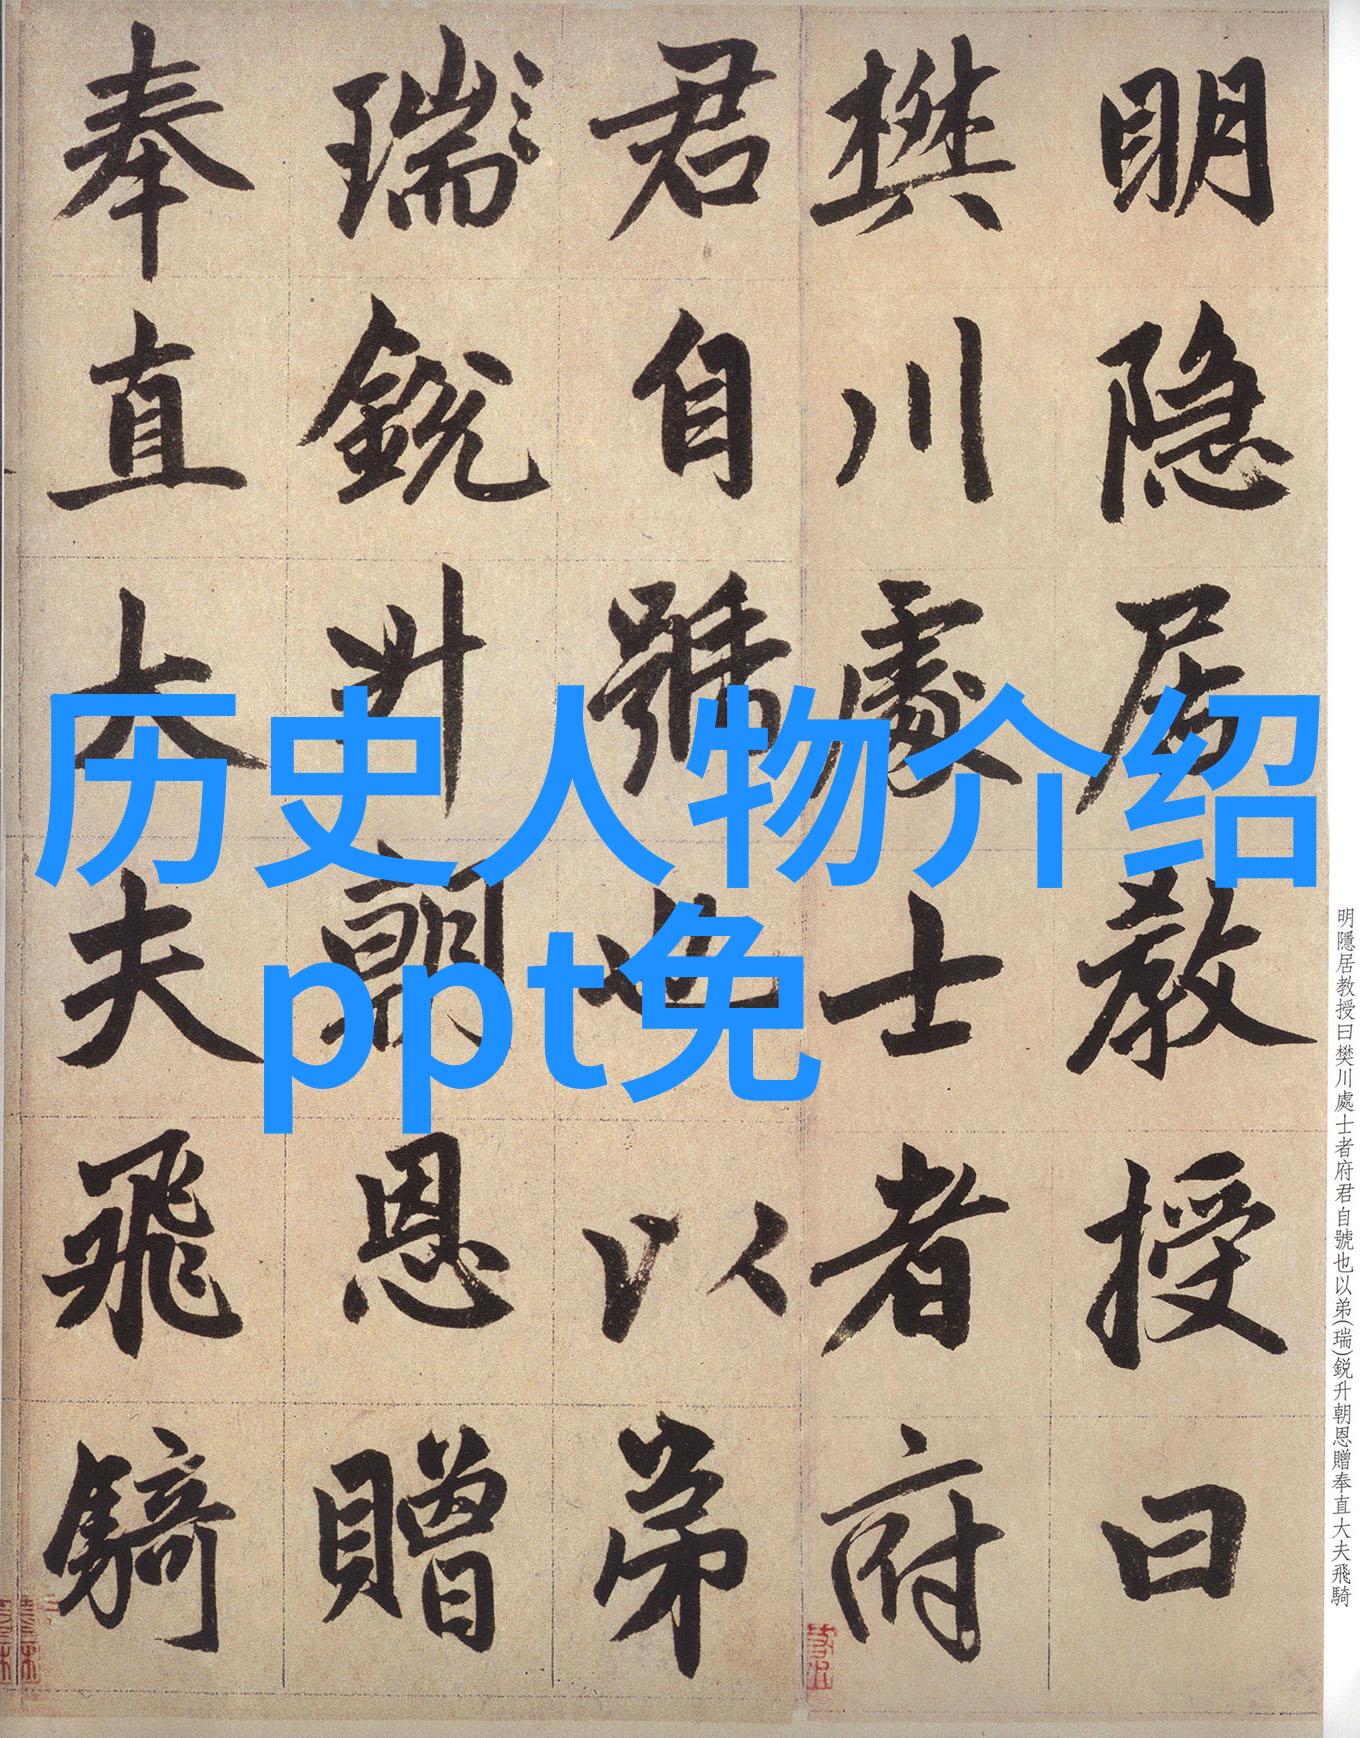 明隐居教授曰
樊川處士者府
君自號也以弟
瑞銳升朝恩贈
奉直大夫飛騎
历史人物介绍
ppt免
明隱居教授曰樊川處士者府君自號也以弟(瑞)鋭升朝恩贈奉直大夫飛騎